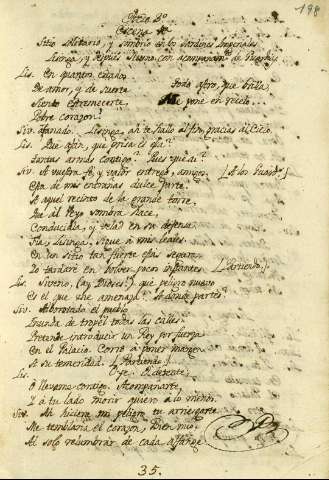 198
Actio 2º
Escena 1ª
Sitio solitario, y sombrio en los Jardines Imperiales
Lisinga, y despues Siveno con acompañam.to de Guardias
Lis. En quanta
De amor, y de suerte
todo astro, que brilla,
Siento estremecerte,
Me pone en recelo...
Pobre corazon!
Siv. afanado. Lisinga, ah te hallo al fin, gracias al Cielo.
Lis. Que afan, que prisa es esta?
tantas armas contigo? Pues que ai?
Siv. A vuestra fe, y valor entrego, amigos, [A los Guard.s]
Esta de mis entrañas dulce parte.
A aquel recinto de la grande torre,
Que al Rey sombra hace,
Conducidla, y velad en su defensa.
Ita, Lisinga, sigue a mis leales.
En un sitio tan fuerte estas segura,
No tardaré en bolver pocos instantes. [Partiendo.]
Lis. Siveno, (ay Dioses!) que peligro nuevo
Es el que nos amenaza? A donde partes?
Siv. Alborotado el pueblo
Inunda de tropel todas las calles.
Pretende introducir un Rey por fuerza
En el Palacio. Corro a poner
A su temeridad. [Partiendo.]
Lis. Oye. Detente,
O llevame contigo. Acompañarte,
Y á tu lado morir quiero á lo menos.
Siv. Ah! hiciera mi peligro tu arriesgarte.
Me temblaria el corazon, bien mio,
Al solo relumbrar de cada alfange.
35.